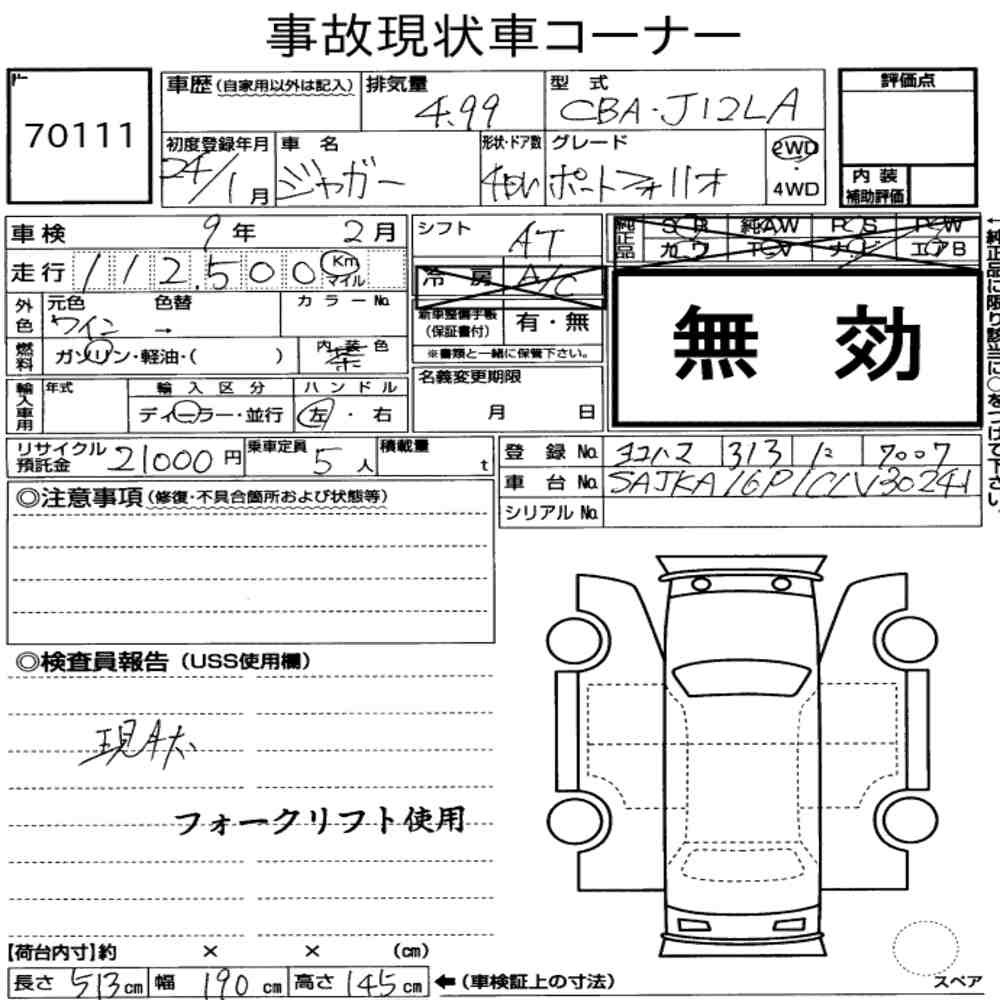 事故現状車コーナー
70111
車歴(自家用以外は記入) 排気量 4.99 型式 CBA-J12LA 評価点
初度登録年月 24/1月 車名 ジャガー 形状・ドア数 グレード ポートフォリオ 2WD・4WD 内装補助評価
車検 9年 2月 シフト AT 純正品 純AW エアB
走行 112,500 Km マイル 冷房 A/C
外色 元色 ワイン 色替 → カラーNo. 新車整備手帳(保証書付) 有・無 無効
燃料 ガソリン・軽油・( ) 内装色 茶 ※書類と一緒に保管下さい。
輸入車用 年式 輸入区分 ディーラー・並行 ハンドル 左・右 名義変更期限 月 日
←純正品に限り該当に○をつけて下さい。
リサイクル預託金 21000円 乗車定員 5人 積載量 t 登録No. ヨコハマ 313 7007
車台No. SAJKA16P1CLV30241
シリアルNo.
◎注意事項(修復・不具合箇所および状態等)
◎検査員報告(USS使用欄)
現状
フォークリフト使用
【荷台内寸】約 × × (cm)
長さ 513cm 幅 190cm 高さ 145cm ←(車検証上の寸法)
スペア